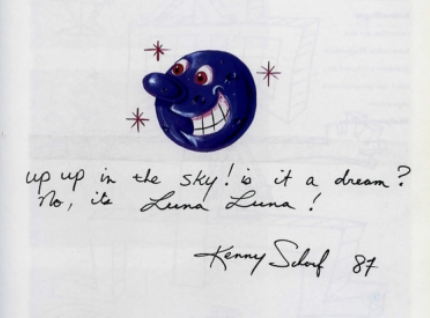 up up in the sky! is it a dream?
No, its Luna Luna!
Kenny Scharf 87